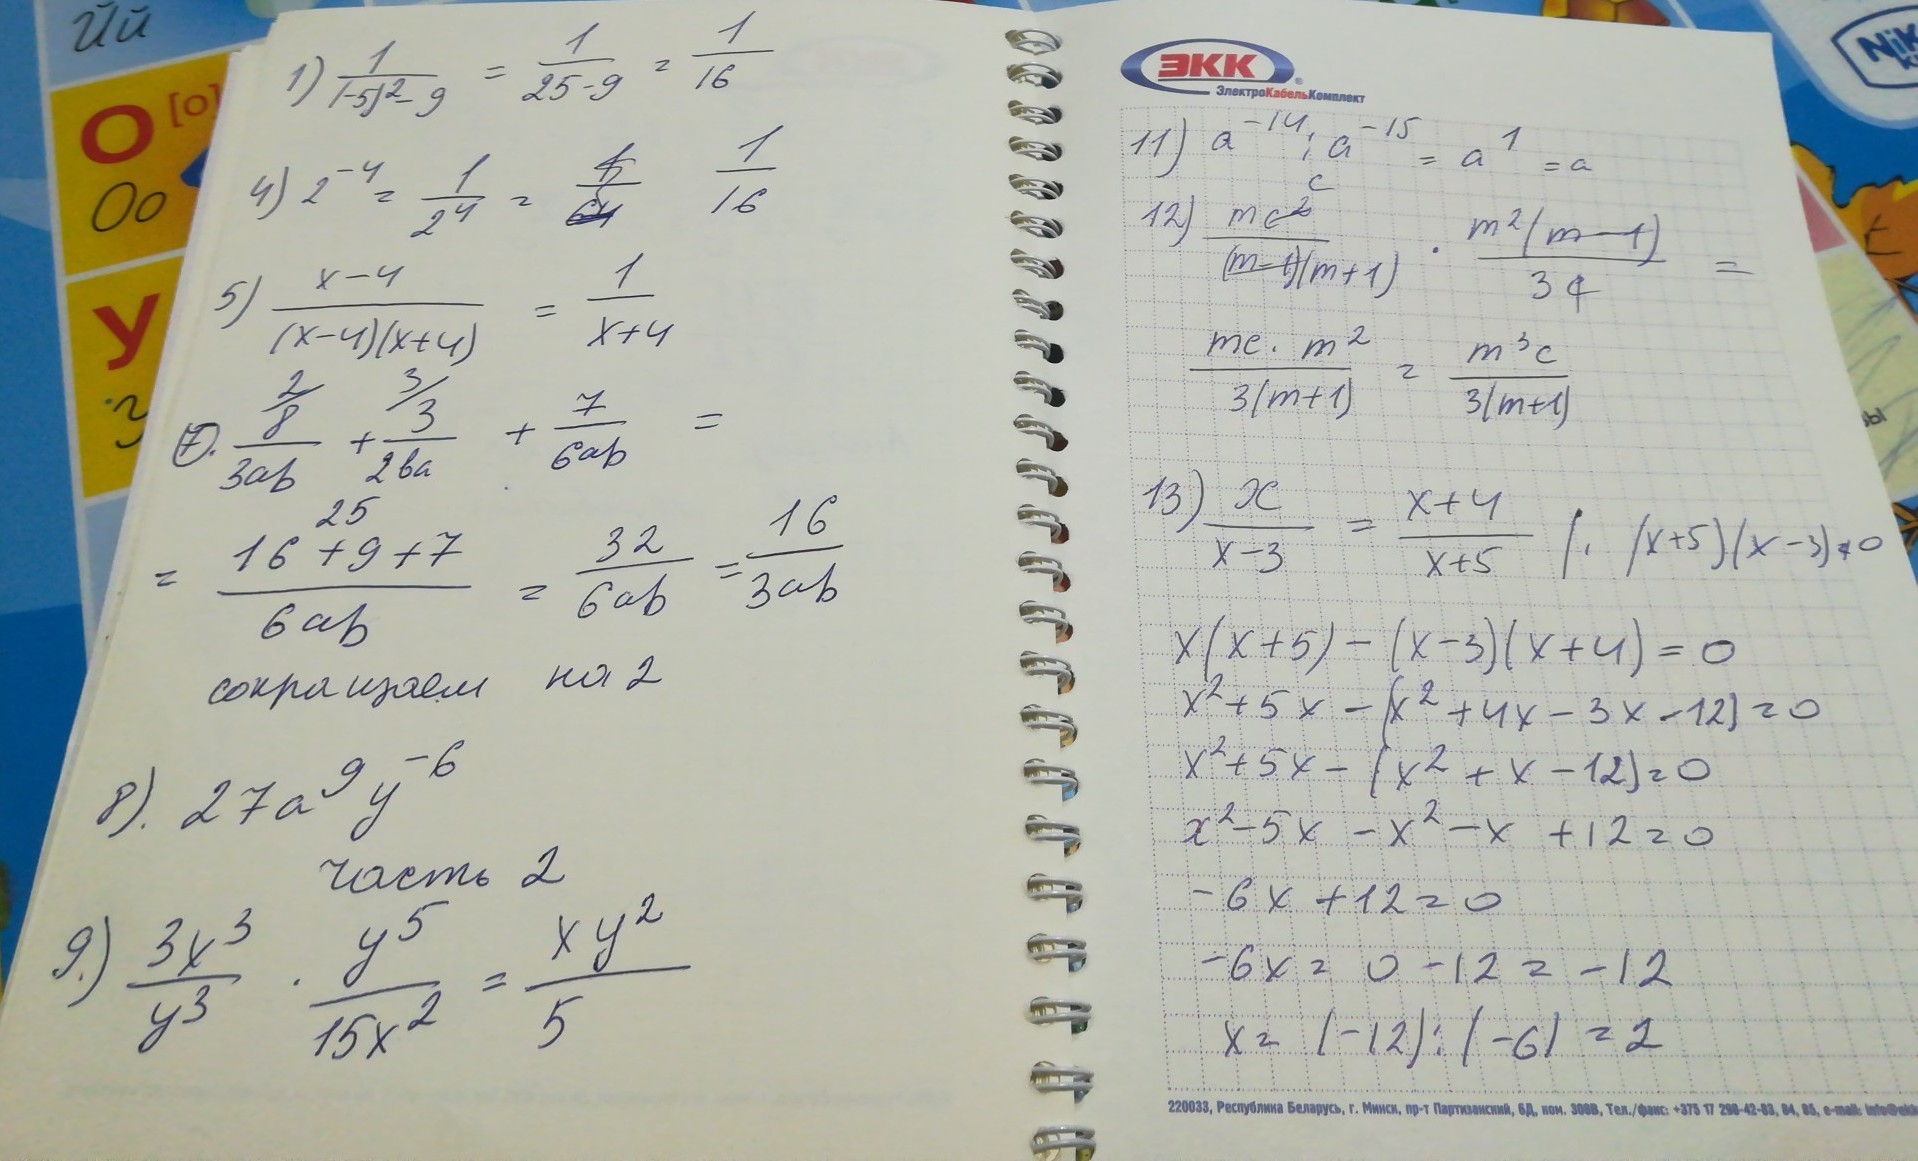 Йй
О [о]
Оо
У
З
1) 1/((-5)²-9) = 1/(25-9) = 1/16
4) 2⁻⁴ = 1/2⁴ = 1/16
5) (x-4)/((x-4)(x+4)) = 1/(x+4)
7. 2/ 8/(3ab) + 3/ 3/(2ba) + 7/(6ab) =
25
= (16+9+7)/(6ab) = 32/(6ab) = 16/(3ab)
сокращаем на 2
8). 27a⁹y⁻⁶
часть 2
9.) 3x³/y³ · y⁵/(15x²) = xy²/5
ЭКК
ЭлектроКабельКомплект
11) a⁻¹⁴ : a⁻¹⁵ = a¹ = a
c
12) mc²/((m-1)(m+1)) · m²(m-1)/(3c) =
mc·m²/(3(m+1)) = m³c/(3(m+1))
13) x/(x-3) = (x+4)/(x+5) /· (x+5)(x-3)≠0
x(x+5)-(x-3)(x+4)=0
x²+5x-(x²+4x-3x-12)=0
x²+5x-(x²+x-12)=0
x²-5x-x²-x+12=0
-6x+12=0
-6x=0-12=-12
x=(-12):(-6)=2
220033, Республика Беларусь, г. Минск, пр-т Партизанский, 6Д, ком. 308В, Тел./факс: +375 17 298-42-83, 84, 85, e-mail: